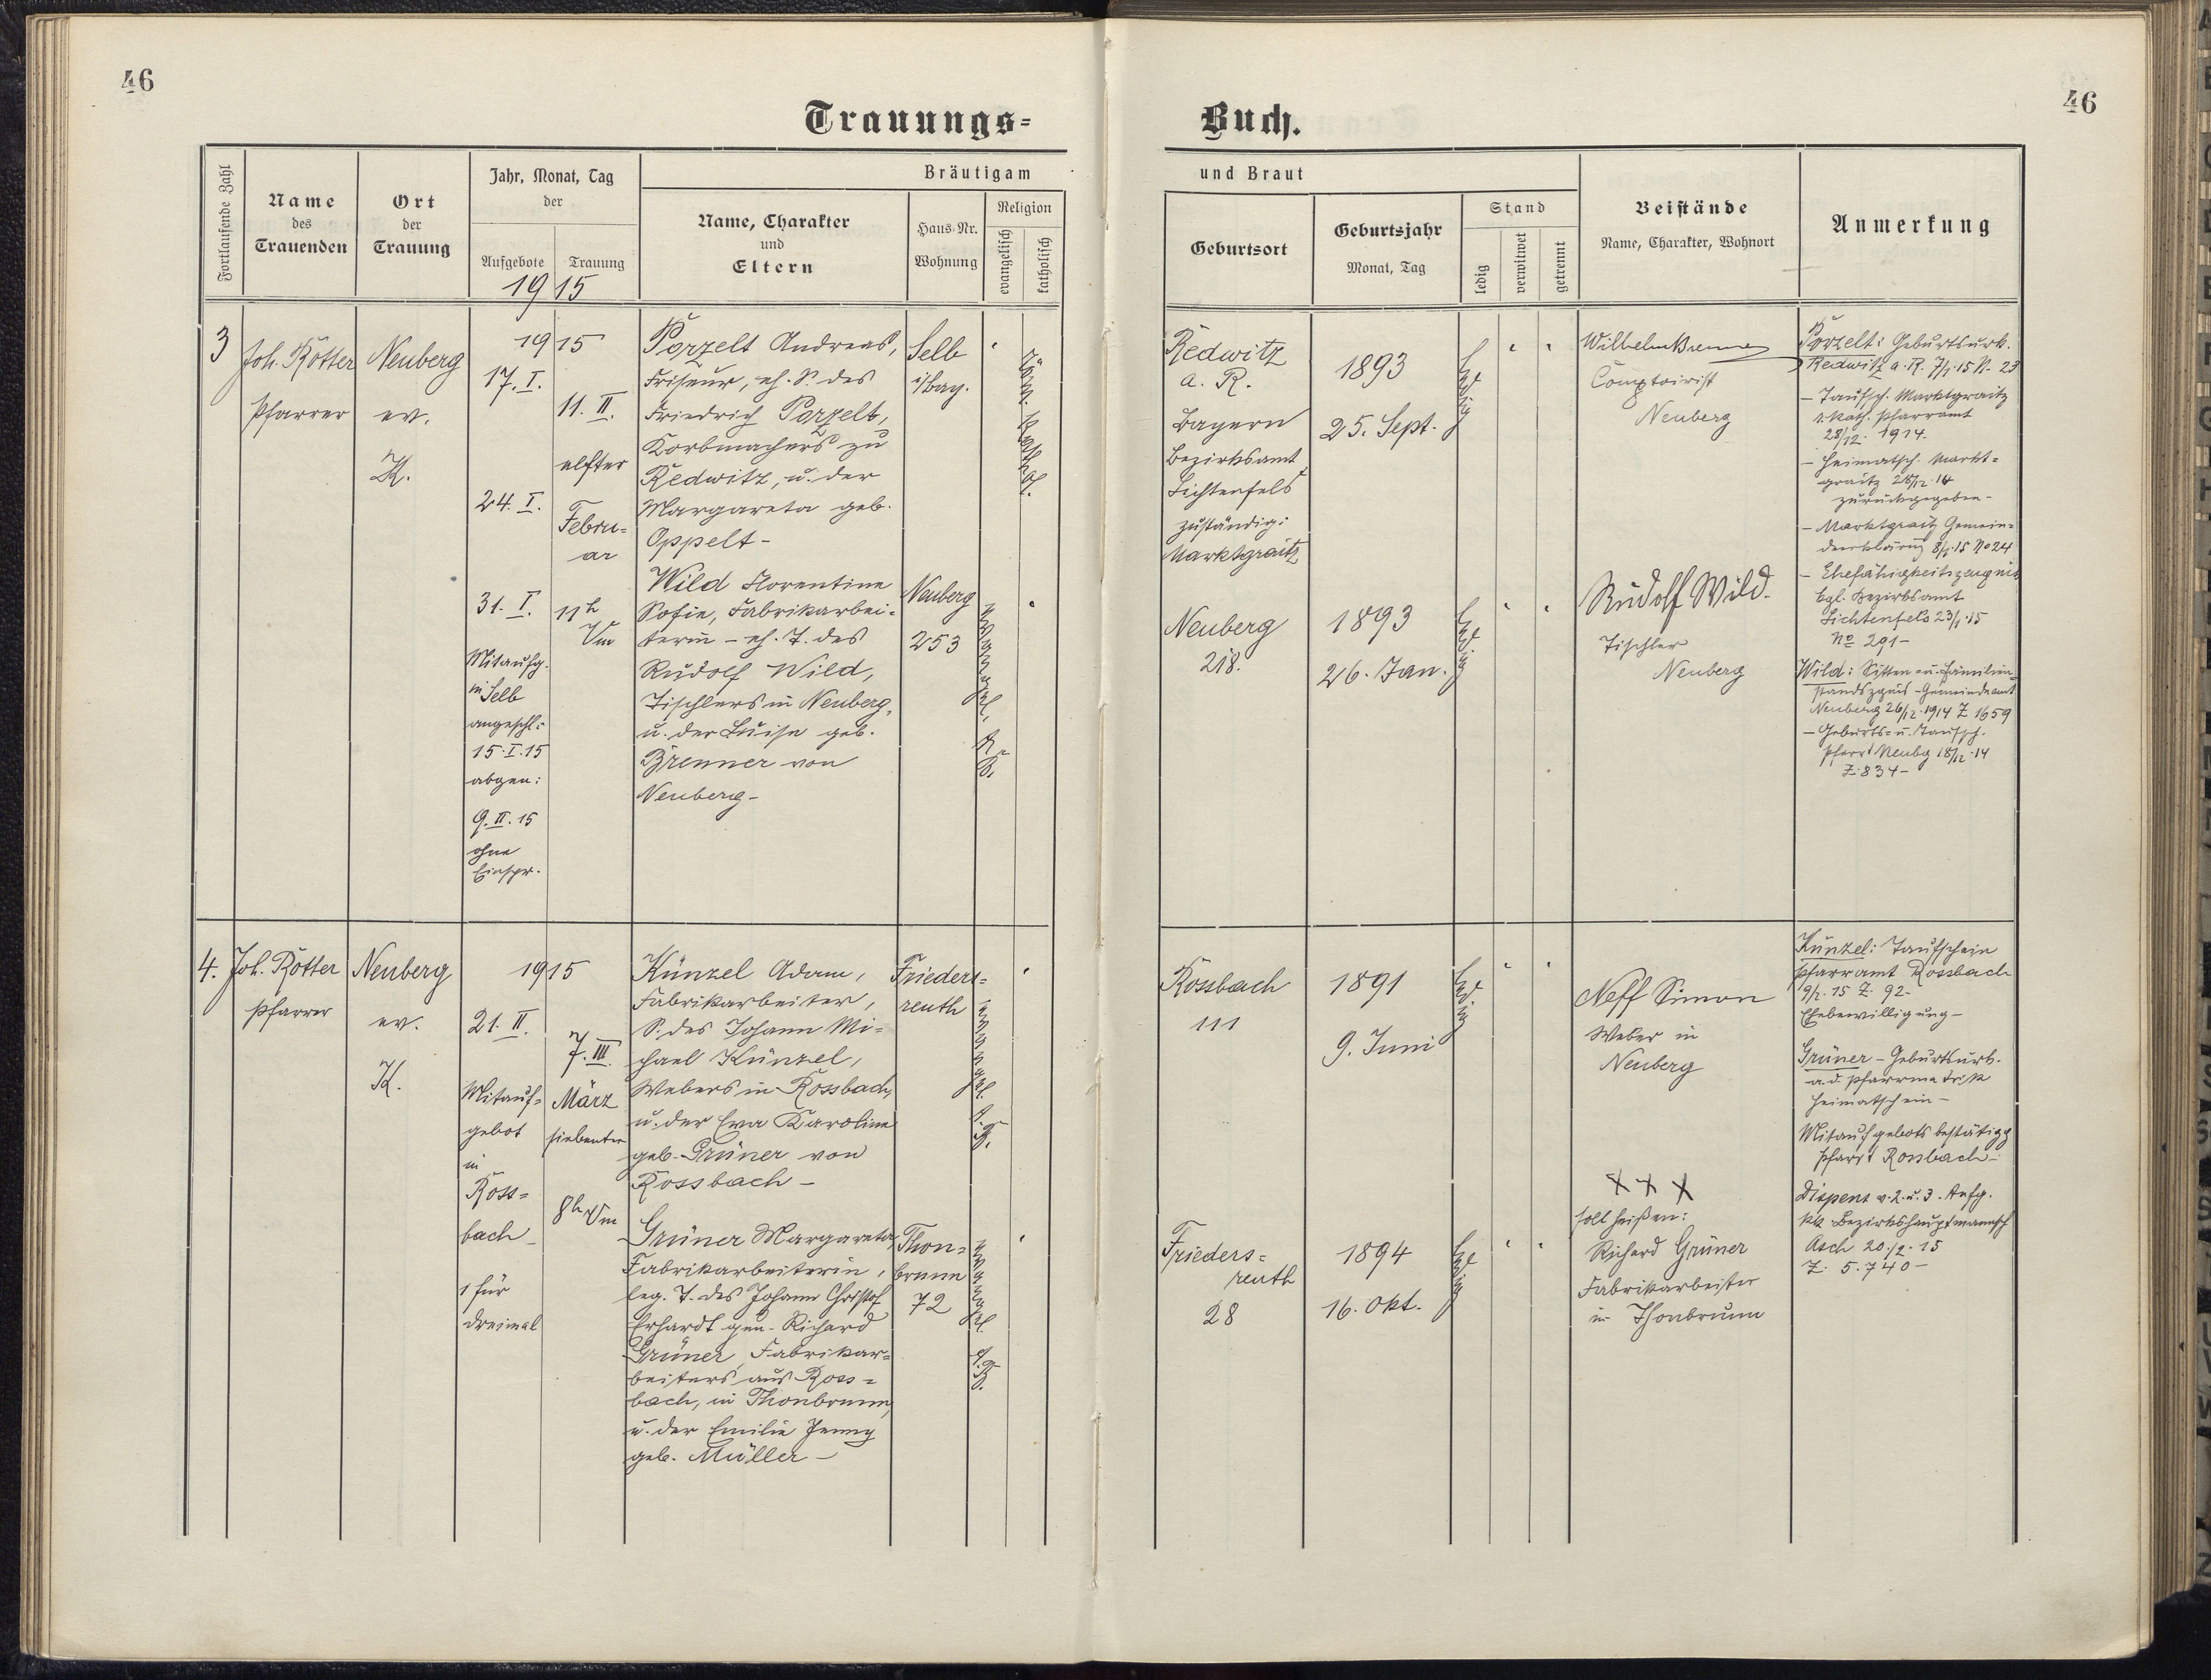 46
46
Trauungs-
Buch.
Fortlaufende Zahl
Name
des
Trauenden
Ort
der
Trauung
Jahr, Monat, Tag
der
Aufgebote
Trauung
1915
Bräutigam
Name, Charakter
und
Eltern
Haus-Nr.
Wohnung
Religion
evangelisch
katholisch
und Braut
Geburtsort
Geburtsjahr
Monat, Tag
Stand
ledig
verwitwet
getrennt
Beistände
Name, Charakter, Wohnort
Anmerkung
3
Joh. Rötter
Pfarrer
Neuberg
ev.
K.
1915
17. I.
24. I.
31. I.
Mitaufg.
in Selb
angeschl:
15. I. 15
abgen:
9. II. 15
ohne
Einspr.
11. II.
elfter
Febru=
ar
11h
Vm
Porzelt Andreas,
Friseur, eh. S. des
Friedrich Porzelt,
Korbmachers zu
Redwitz, u. der
Margareta geb.
Oppelt -
Selb
i/bay.
röm. kathol.
Redwitz
a. R.
Bayern
Bezirksamt
Lichtenfels
zuständig:
Marktgraitz
1893
25. Sept.
ledig
Wilhelm Brenner
Comptoirist
Neuberg
Porzelt: Geburtsurk.
Redwitz a. R. 7/1.15 N. 23
- Taufsch. Marktgraitz
r. kath. Pfarramt
28/12. 1914.
- Heimatsch. Markt=
graitz 28/12.14
zurückgegeben -
- Marktgraitz Gemein=
deerklärung 8/1.15 No 24
- Ehefähigkeitszeugnis
kgl. Bezirksamt
Lichtenfels 23/1.15
No 291 -
Wild Florentine
Sofie, Fabrikarbei=
terin - eh. T. des
Rudolf Wild,
Tischlers in Neuberg,
u. der Luise geb.
Brenner von
Neuberg -
Neuberg
253
evangel. A. B.
Neuberg
218.
1893
26. Jan.
ledig
Rudolf Wild.
Tischler
Neuberg
Wild: Sitten- u. Familien=
Gemeindeamt
Neuberg 26/12.1914 Z 1659
- Geburts- u. Taufsch.
Pfarrt Neubg 18/12.14
Z. 834 -
4.
Joh. Rötter
Pfarrer
Neuberg
ev.
K.
1915
21. II.
Mitauf=
gebot
in
Ross=
bach -
1 für
dreimal
7. III.
März
siebenter
8h Vm
Künzel Adam,
Fabrikarbeiter,
S. des Johann Mi=
chael Künzel,
Webers in Rossbach,
u. der Eva Karoline
geb. Grüner von
Rossbach -
Frieders=
reuth
evangel. A. B.
Rossbach
111
1891
9. Juni
ledig
Neff Simon
Weber in
Neuberg
Künzel: Taufschein
Pfarramt Rossbach
9/2. 15 Z. 92 -
Ehebewilligung -
Grüner - Geburtsurk.
a. d. Pfarrmatrik
Heimatschein -
Mitaufgebots bestätigg
Pfarrt Rossbach -
Dispens v. 2. u. 3. Aufg.
kk Bezirkshauptmannsch
Asch 20./2. 15
Z. 5.740 -
Grüner Margareta,
Fabrikarbeiterin,
leg. T. des Johann Christof
Erhardt gen. Richard
Grüner, Fabrikar=
beiters aus Ross=
bach, in Thonbrunn,
u. der Emilie Jenny
geb. Müller -
Thon=
brunn
72
evangel. A. B.
Frieders=
reuth
28
1894
16. Okt.
ledig
+++
soll heißen:
Richard Grüner
Fabrikarbeiter
in Thonbrunn